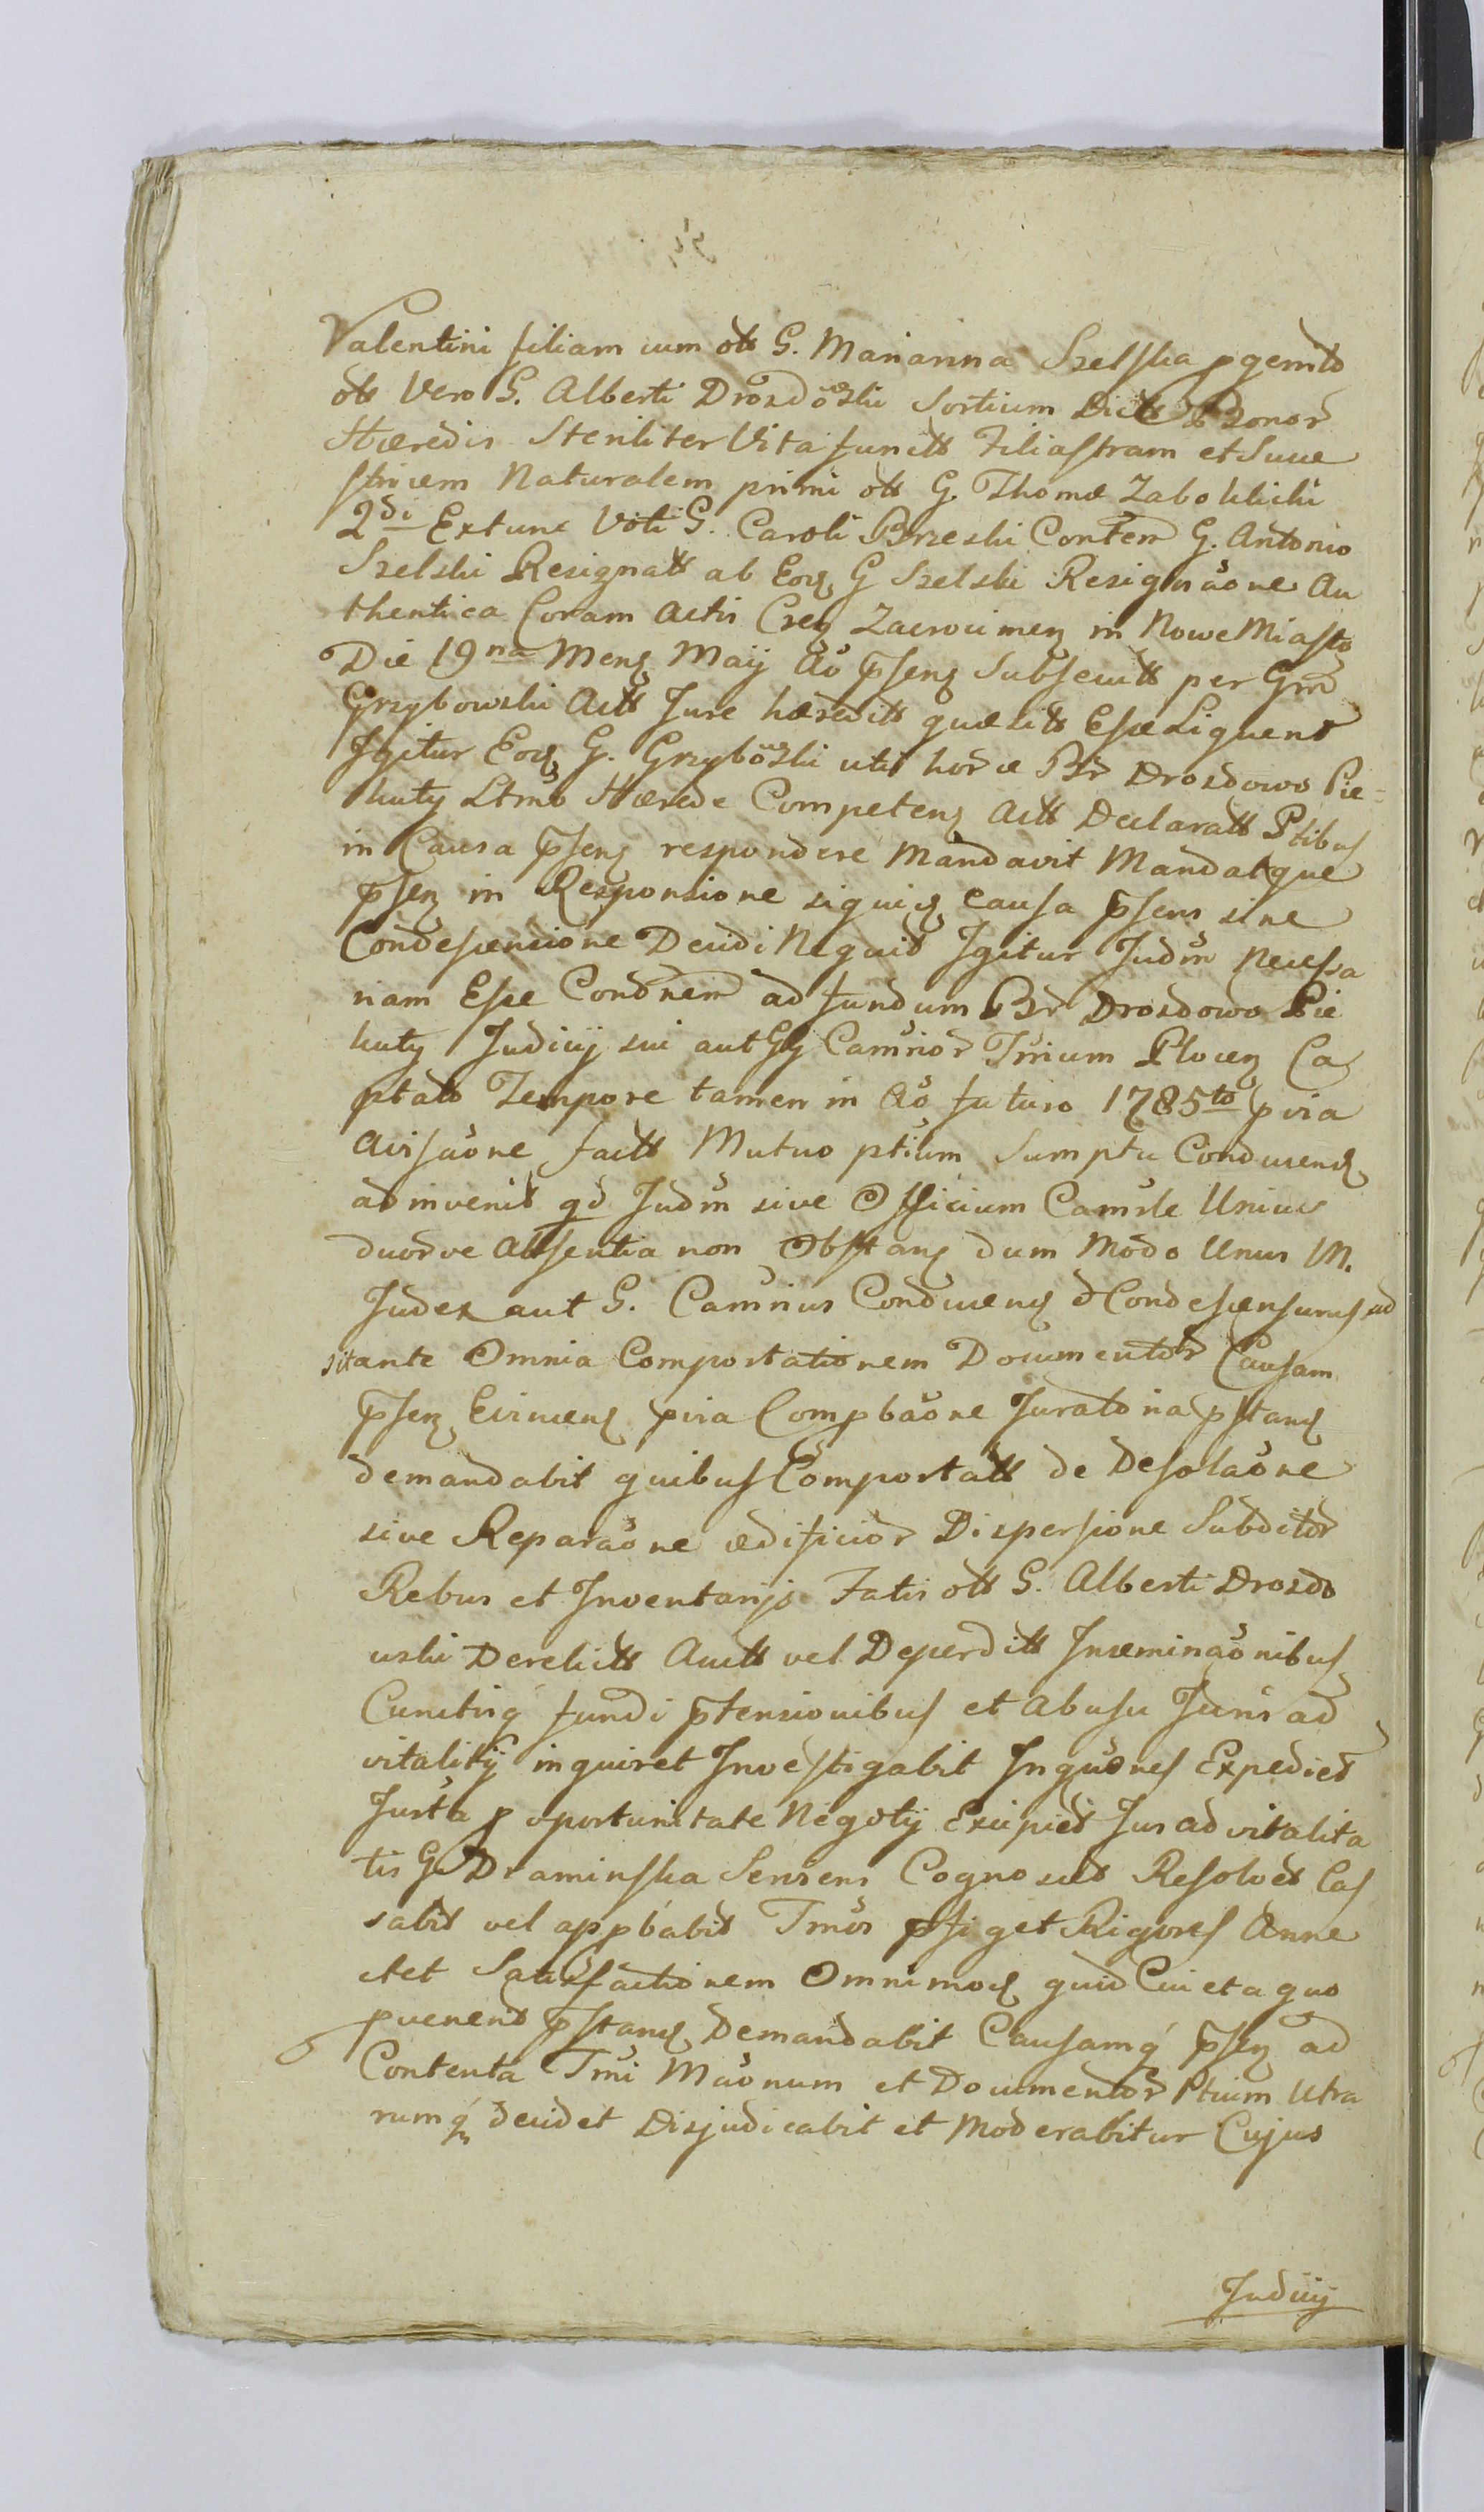 Valentini filiam cum ott G. Marianna Szelska pgenitd
ott Vero G. Alberti Drozdowski Sortium Dictt Bonor
Hæredis Steriliter Vita functt Filiastram et Succe
stricem Naturalem primi ott G. Thomæ Zaboklicki
2di Extunc Voti G. Caroli Brzeski Contem G. Antonio
Szelski Resignatt ab Eoq G Szelski Resignaone Au
thentica Coram Actis Cren Zacrocimen in Nowe Miasto
Die 19na Mens Maij Ao psens Subsecutt per Gm
Grzybowski Actt Jure hæreditt quæsitt Esse Liquend
Igitur Eoq G. Grzybowski uti horæ Br Drozdowo Pie=
huty Ltmo Hærede Competens Actt Declaratt Ptibus
in Causa psens respondere Mandavit Mandatque
psen in Responsione siquiq Causa psens sine
Condescensione Decidi Nequid Igitur Judm Necessa
riam Esse Condnem ad fundum Br Drozdowo Pie
huty Judicij sui aut GG Camrior Trrium Plocen Ca
ptato Tempore tamen in Ao futuro 1785to pvia
Avisaone factt Mutuo ptium Sumptu Conducend
adinvenit qd Judm sive Officium Camrle Unius
duorve Absentia non Obstans dum Modo Unus M.
Judex aut G. Camrius Conducens d Condescensurus ad
sit ante Omnia Comportationem Documentor Causam
psen Evincens pvia Compbaone Juratoria pstand
demandabit quibus Comportatt de Desolaone
sive Reparaone ædificior Dispersione Subditor
Rebus et Inventarijs Fatis ott G. Alberti Drozdo
wski Derelictt Auctt vel Deperditt Inseminaonibus
Cunctisq fundi ptensionibus et Abusu Juris ad
vitalitij inquiret Investigabit Inquones Expediet
Justa p oportunitate Negotij Excipiet Jus advitalita
tis G. Draminska Serviens Cognoscet Resolvet Cas
sabit vel appbabit Trmos pfiget Rigores Anne
ctet Satisfactionem Omnimod quid Cui et a quo
pvenend pstand Demandabit Causamq psen ad
Contenta Trmi Maonum et Documentor Ptium Utra
rumq decidet Disjudicabit et Moderabitur Cujus
Judicij